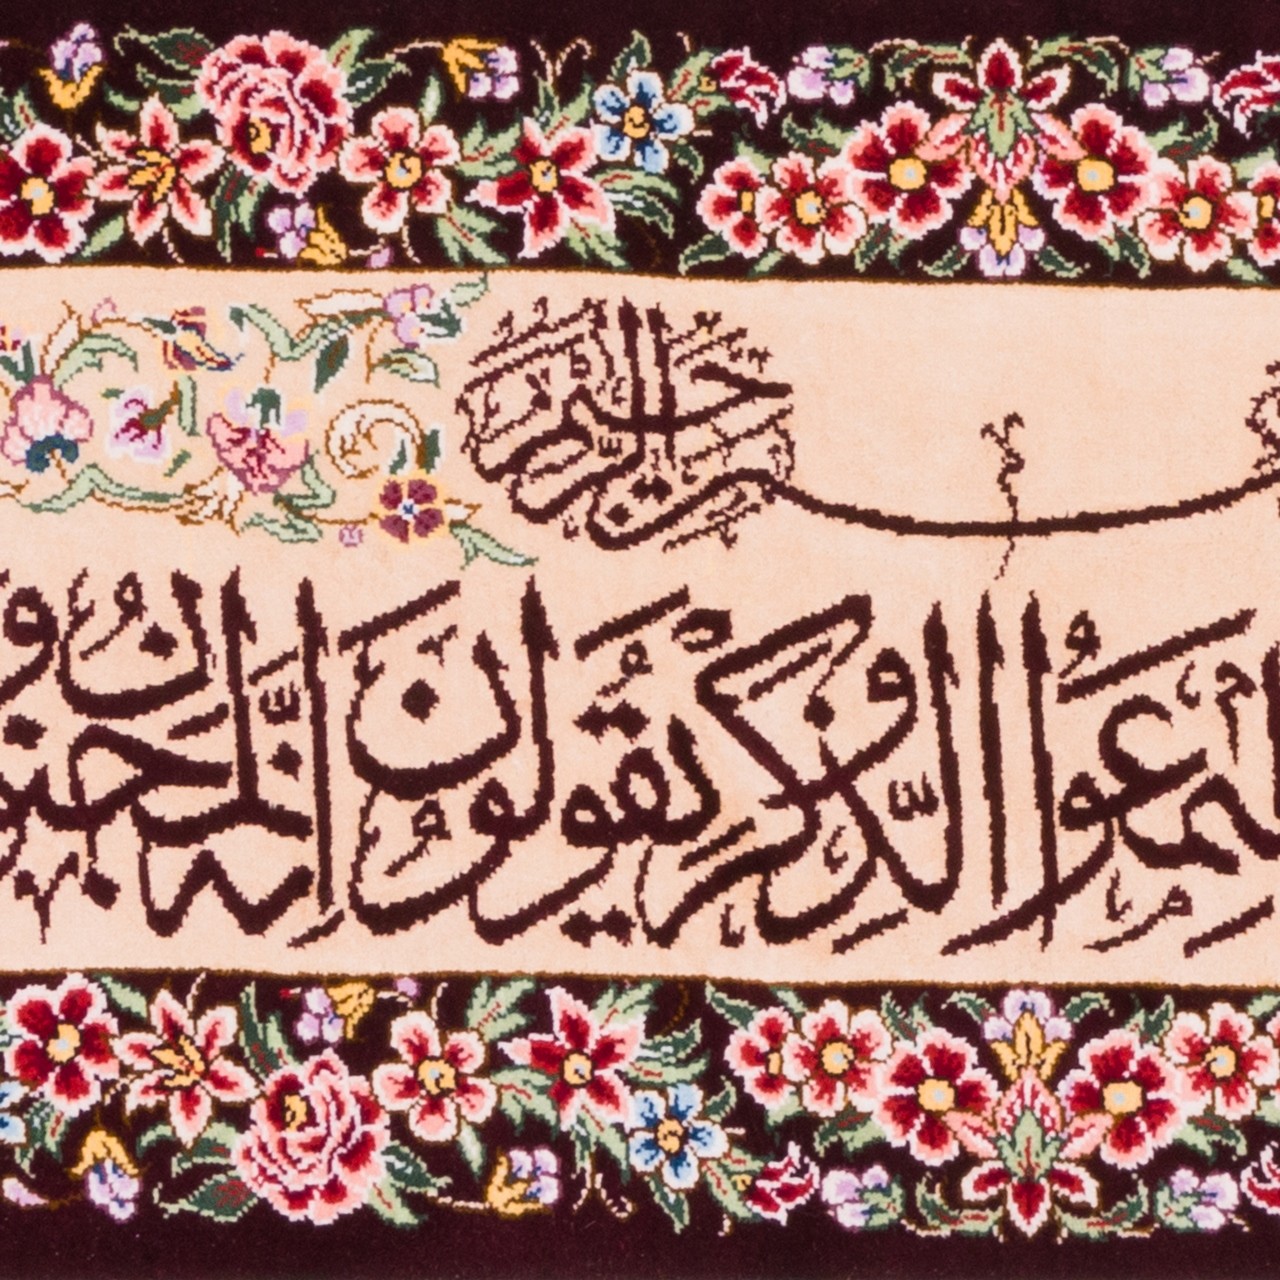 الرحمن الرحيم
سَمِعُوا الذِّكْرَ وَيَقُولُونَ إِنَّهُ لَمَجْنُونٌ وَ